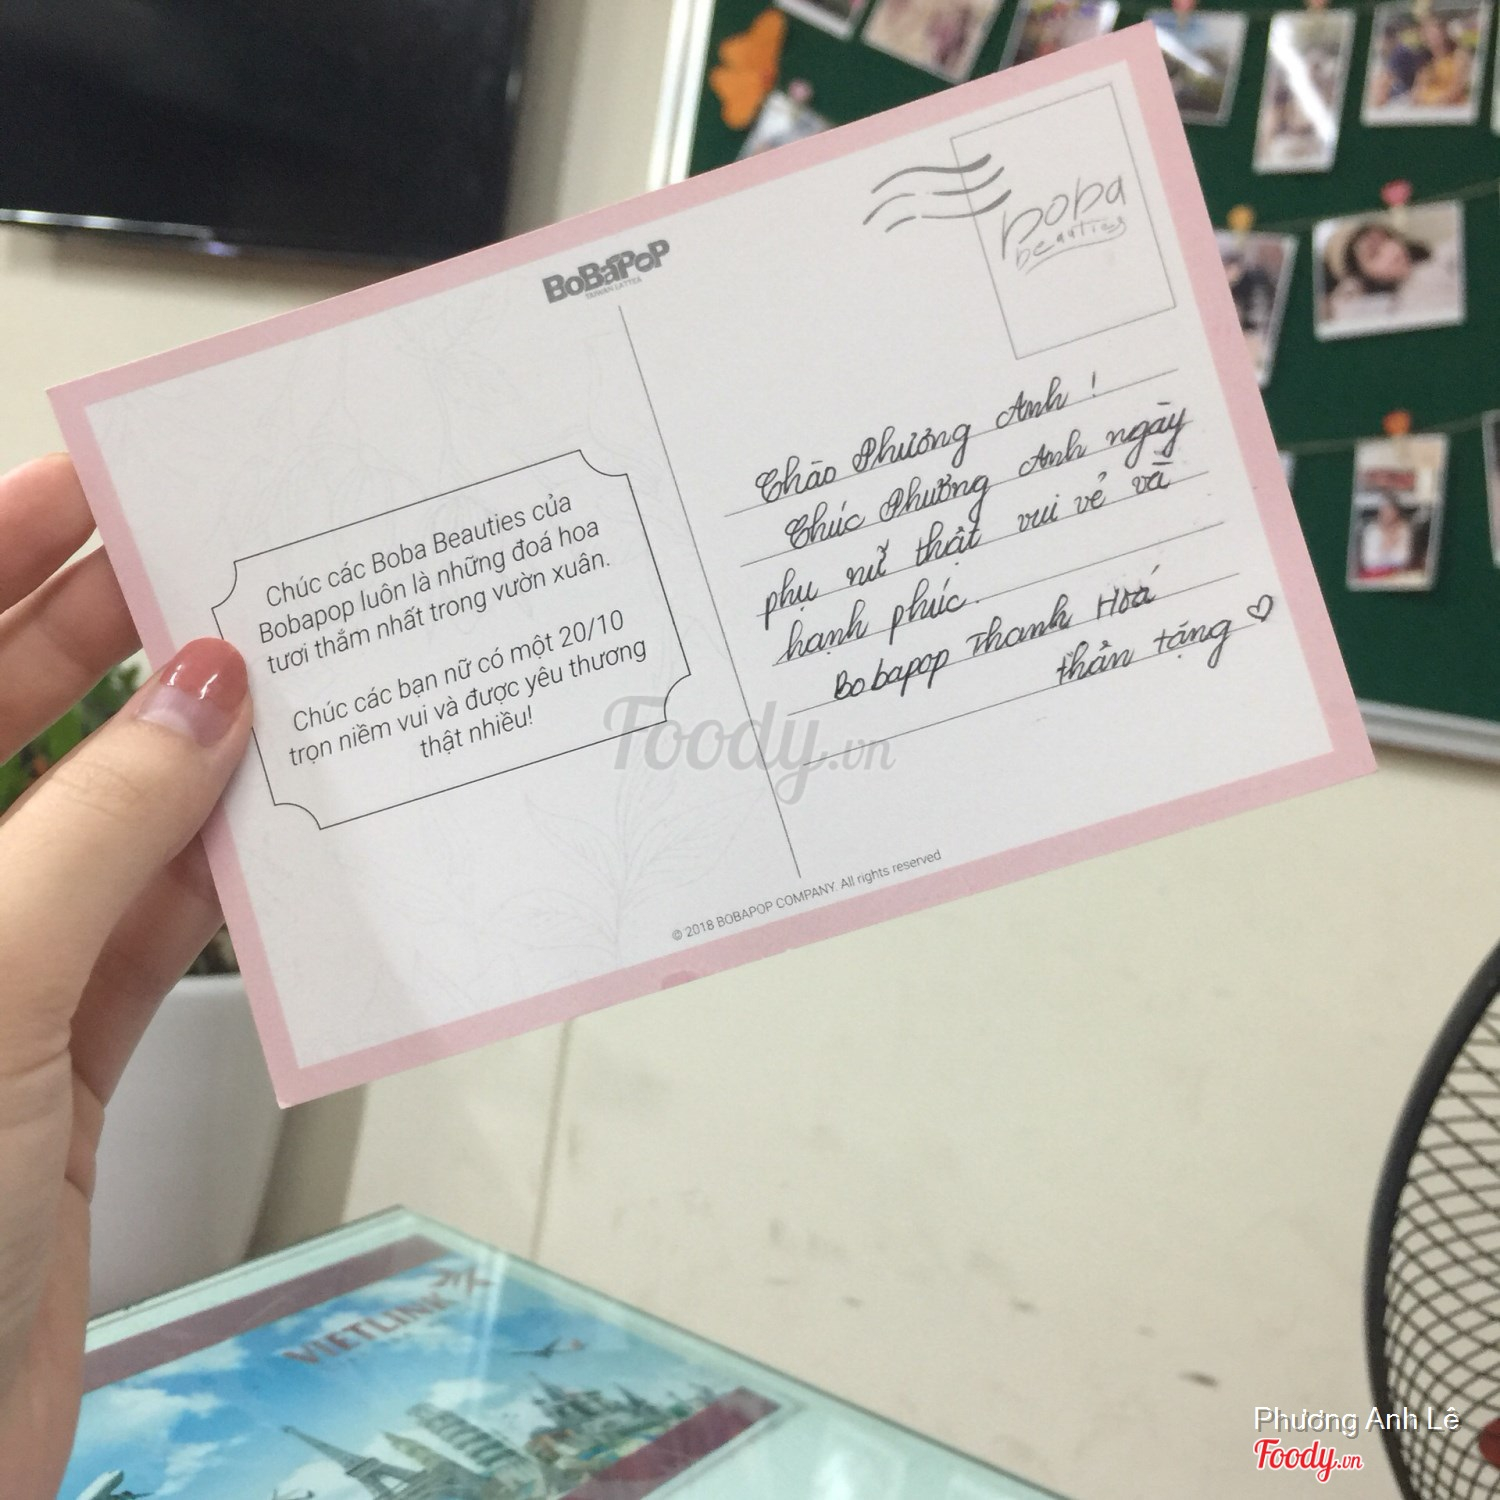 BoBaPoP
TAIWAN LATTEA
boba
beauties
Chúc các Boba Beauties của
Bobapop luôn là những đoá hoa
tươi thắm nhất trong vườn xuân.
Chúc các bạn nữ có một 20/10
trọn niềm vui và được yêu thương
thật nhiều!
Chào Phương Anh !
Chúc Phương Anh ngày
phụ nữ thật vui vẻ và
hạnh phúc.
Bobapop Thanh Hoá
thân tặng ♡
© 2018 BOBAPOP COMPANY. All rights reserved
Foody.vn
VIETLINK
Phương Anh Lê
Foody.vn